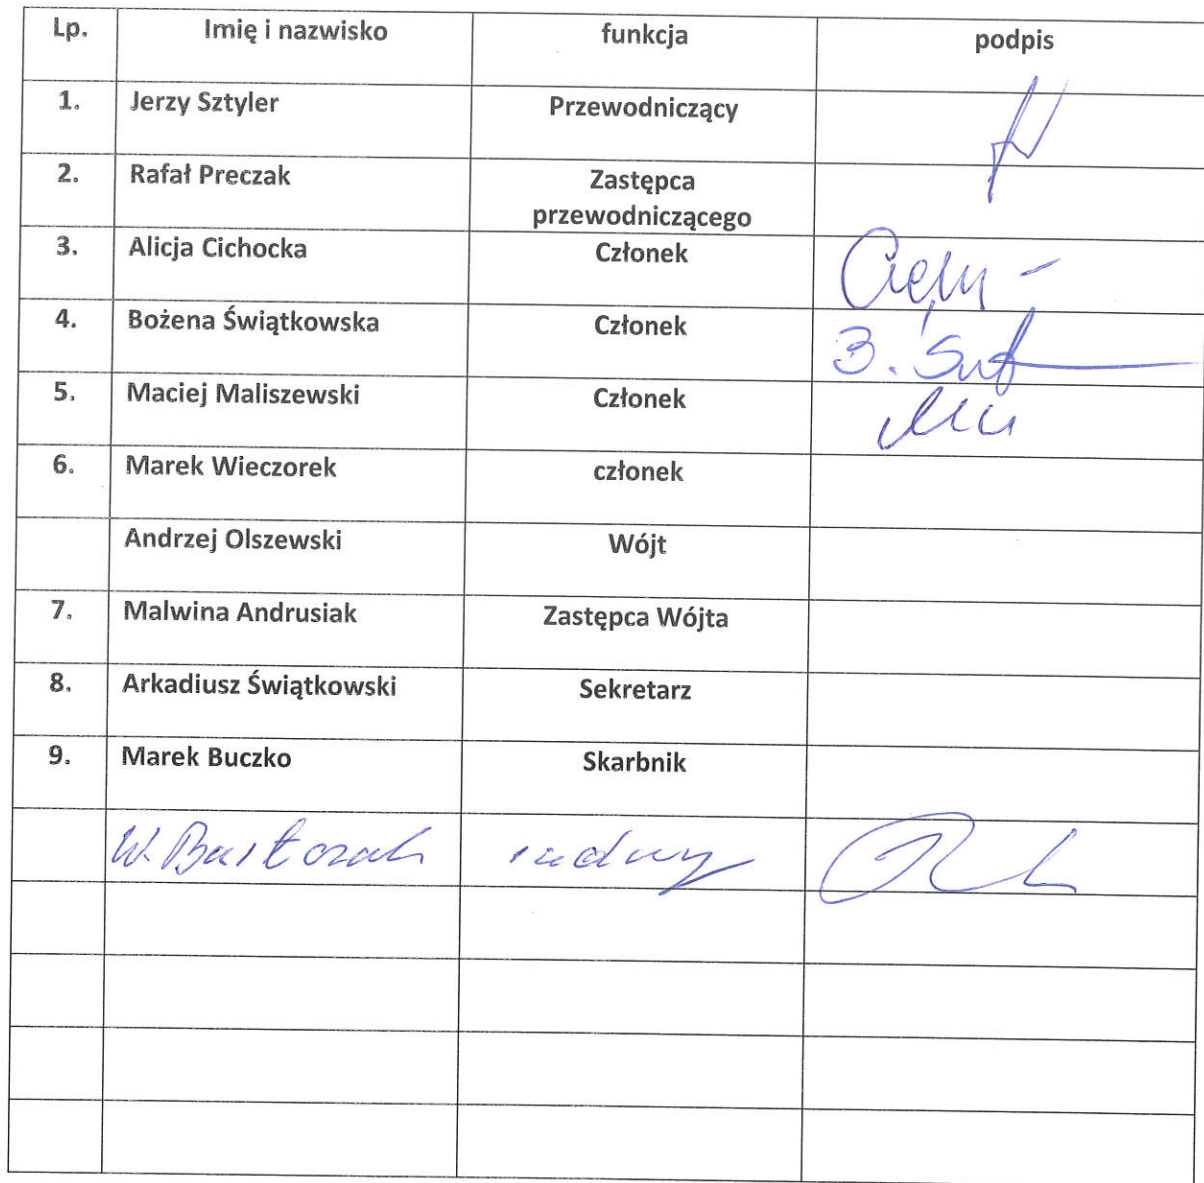 Lp. Imię i nazwisko funkcja podpis
1. Jerzy Sztyler Przewodniczący
2. Rafał Preczak Zastępca
przewodniczącego
3. Alicja Cichocka Członek
4. Bożena Świątkowska Członek B.
5. Maciej Maliszewski Członek
6. Marek Wieczorek członek
Andrzej Olszewski Wójt
7. Malwina Andrusiak Zastępca Wójta
8. Arkadiusz Świątkowski Sekretarz
9. Marek Buczko Skarbnik
W. Bartczak radny